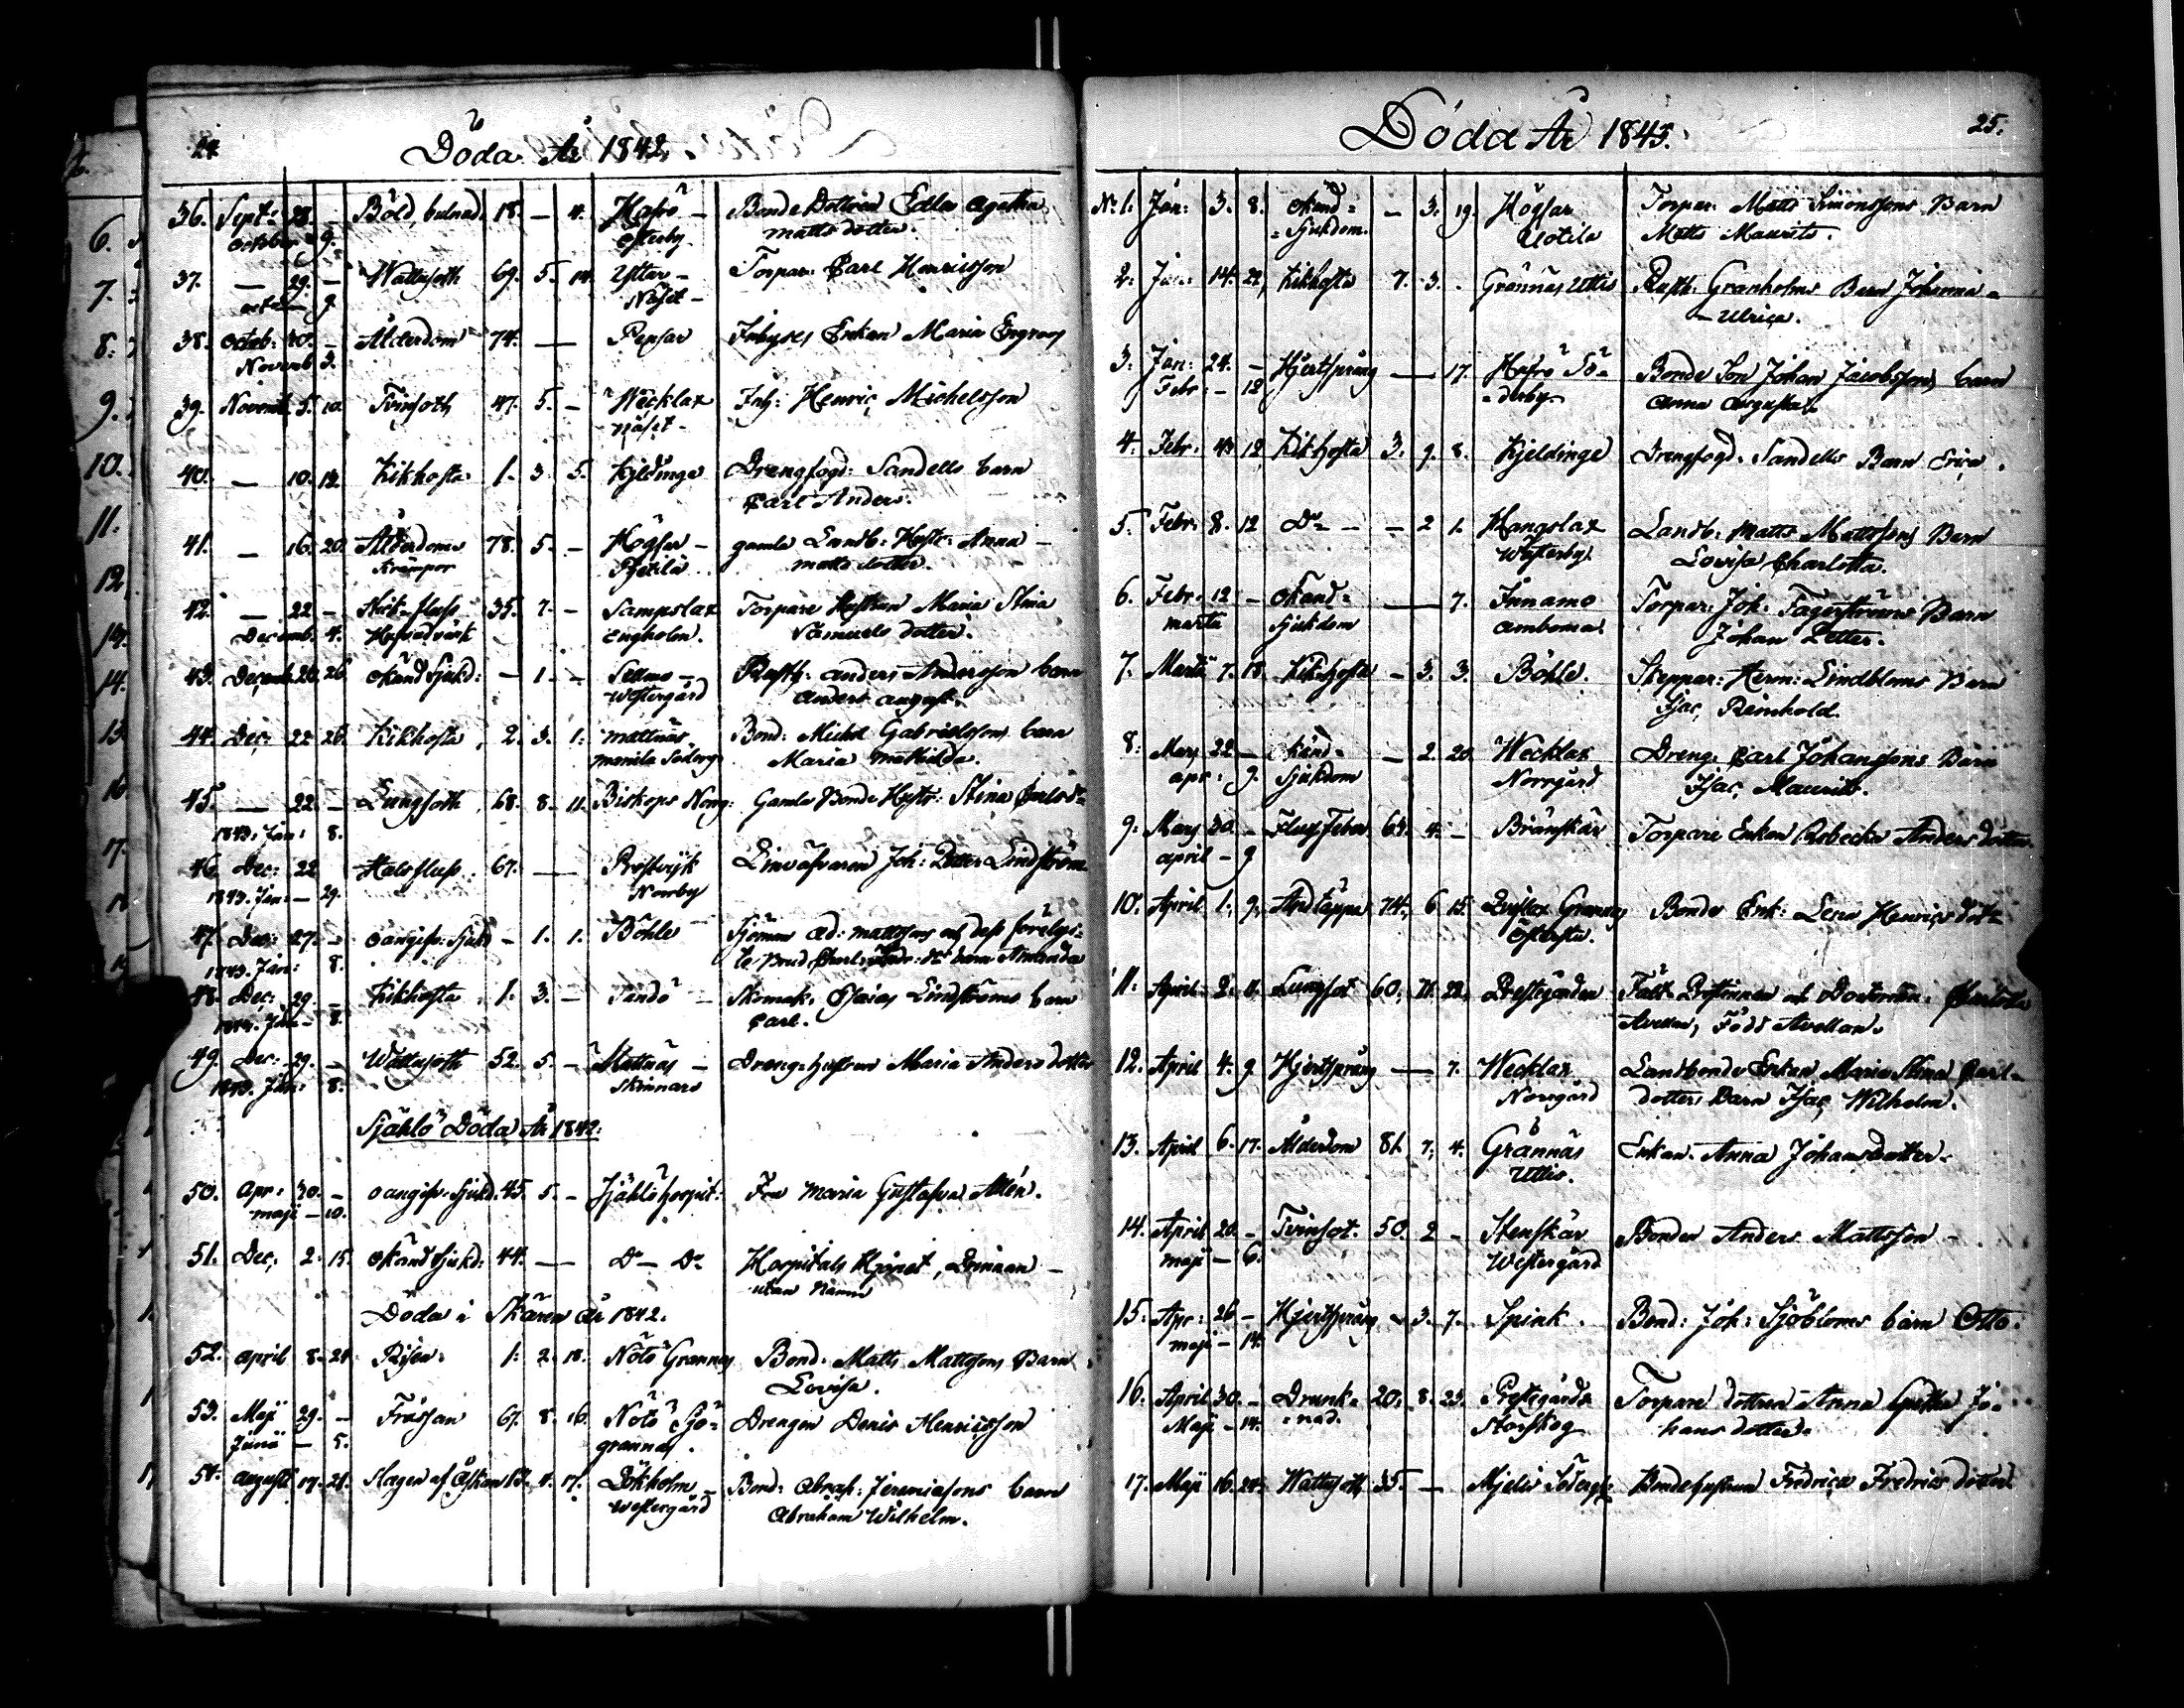 24
Döda År 1842.
36. Sept: 28. – Böld, bulnad. 18. – 4. Hafrö – Bonde Dottren Edla Agatha
October 9. Österby matts dotter.
37. — 29. – Wattusoth 69. 5. 14. Ytter – Torpar: Carl Henricsson
octo – 9. Näset –
38. Octob: 30. – Ålderdom 74. — Pepsar Inhyses Enkan Maria Engroos
Novemb 3.
39. Novemb. 5. 10. Tvinsoth 47. 5. – Wecklax Inh: Henric Michelsson
näset –
40. — 10. 12. Kikhosta 1. 3. 5. Kjeldinge Drengfogd: Sandells barn
Carl Anders.
41. — 16. 20. Ålderdoms 78. 5. – Högsar – gamla Landb: Hustr: Anna –
Krämpor matts dotter.
42. — 22 – 35. 7. – Sampslax Torpare Hustrun Maria Stina
Decemb. 4. Hufvudvärk Engholm. Samuels dotter.
43. Decemb. 26. okänd Sjukd: – 1. – Sellmo – Rusth: Anders Andersson barn
Westergård Anders August.
44. Dec: 22 26. Kikhosta. 2. 3. 1. Mattnäs Bond: Michel Gabrielssons barn
Söderg. Maria Mathilda.
45. — 22. – Lungsoth 68. 8. 11. Biskops Norrg: Gamla Bonde Hustr: Stina
1843. Jan: 8.
46. Dec: 22 Halsfluss. 67. — Prostvijk Joh: Petter Lindström
1843. Jan: – 29. Norrby
47. Dec: 27. – oangifv: Sjukd – 1. 1. Böhle Sjöman Ad: Mattssons och dess
1843. Jan: 8. barn Amanda
48. Dec: 29. – Kikhosta 1. 3. – Sandö – Skomak: Esaias Lindströms barn
1843. Jan – 8. Carl.
49. Dec: 29. – Wattusoth 52. 5. – Mattnäs – Dreng: hustrun Maria Anders dotter
1843. Jan: 8. Skinnars
Själlö Döda År 1842:
50. Apr: 30. – oangifv: Sjukd. 45. 5. – Själlö hospit: Fru Maria Gustafva Alén.
maji – 10.
51. Dec: 2. 15. okänd Sjukd: 44. — Do – Do Hospitals Hjonet, Qvinnan –
utan Namn
Döda i Skären År 1842.
52. april 8. 24. Risen: 1. 2. 18. Nötö Grannas Bond: Matts Mattssons Barn
Lovisa.
53. Maji 29. – Frässan 67. 8. 16. Nötö Sjö- Drengen Denis Henricsson
Junii – 5. grannas.
54. augusti 17. 21. Slagen af Åskan 13. 4. 17. Lökholm – Bond: Abrah: Jeremiasons barn
Westergård Abraham Wilhelm.
Döda År 1843.
25.
No. 1. Jan: 3. 8. okänd= – 3. 19. Högsar Torpar: Matts Simonssons Barn
=Sjukdom. Uotila Matts Maurits.
2. Jan: 14. 22, Kikhosta 7. 3. . Grännäs Uttis Rusth: Granholms Barn Johanna=
– Ulrica.
3. Jan: 24. – Hjertsprång — 17. Hafrö Sö= Bonde Son Johan Jacobssons barn
Febr: – 12 =derby Anna Augusta.
4. Febr. 12 Kikhosta 3. 9. 8. Kjeldinge Drengfogd: Sandells Barn Erica.
5. Febr. 8. 12 Do – – 2 1. Hangslax Landb: Matts Mattssons Barn
Westerby Lovisa Charlotta.
6. Febr. 12 – okänd= — 7. Innamo Torpar: Joh: Fagerströms Barn
martii Sjukdom Johan Petter.
7. Martii 7. 18. Kikhosta – 3. 3. Böhle. Skeppar: Herm: Lindbloms Barn
Isac Reinhold.
8. Mars 22 – okänd= – 2. 20. Wecklax Dreng: Carl Johanssons Barn
apr: 9. Sjukdom Norrgård Isac Maurits.
9. Mars 30. – Feber 63. 4. – Bränskär Torpare Enkan Rebecka Anders dotter.
april – 9
10. April 1. 9. Andtäppa 74. 6 15. Grannas Bonde Enk: Lena Henrics dotr
11. April 2. Lungsot 60. 11. 22. Prestegården Fält Prostinnan och
född Avellan.
12. April 4. 9 Hjertsprång — 7. Wecklax Landbonde Enkan Maria Stina Carl=
Norrgård dotters Barn Isac Wilhelm.
13. April 6. 17. Ålderdom 81. 7. 4. Grännäs Enkan Anna Johansdotter.
Uttis.
14. April 20. – Tvinsot. 50. 2 – Stenskär Bonden Anders Mattsson –
maji – 6. Westergård
15. Apr: 26 – Hjertsprång – 3. 7. Spink. Bond: Joh: Sjöbloms barn Otto.
maji – 14.
16. April 30. – Drunk= 20. 8. 23. Prestegårds Torpare dottren Anna Greta Jo=
Maji – 14. =nad. Storskog hans dotter.
17. Maji 16. 24. Wattusoth 35. – Mielis Söderg: Bondehustrun Fredrica Fredrics dotter.